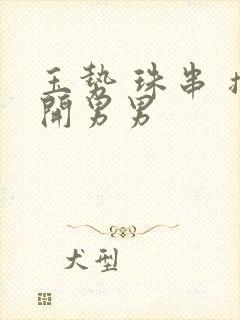 玉勢珠串
開男男
犬型